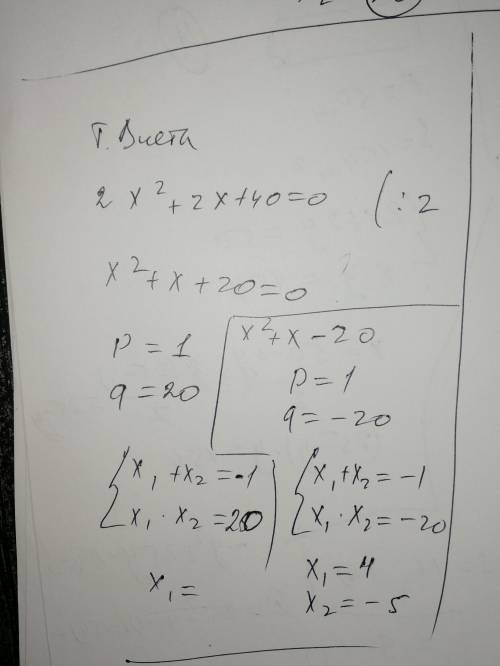 Т. Виета
2 x² + 2x + 40 = 0 ( : 2
x² + x + 20 = 0
p = 1
q = 20
{ x₁ + x₂ = -1
x₁ · x₂ = 20
x₁ =
x² + x - 20
p = 1
q = -20
{ x₁ + x₂ = -1
x₁ · x₂ = -20
x₁ = 4
x₂ = -5